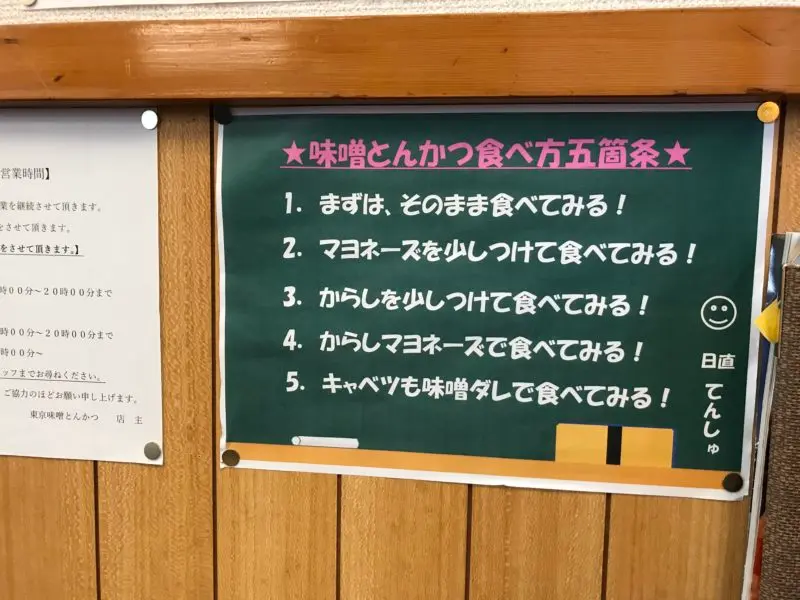 営業時間】
業を継続させて頂きます。
をさせて頂きます。
をさせて頂きます。】
時００分～２０時００分まで
時００分～２０時００分まで
時００分～
ッフまでお尋ねください。
ご協力のほどお願い申し上げます。
東京味噌とんかつ　店　主
★味噌とんかつ食べ方五箇条★
1. まずは、そのまま食べてみる！
2. マヨネーズを少しつけて食べてみる！
3. からしを少しつけて食べてみる！
4. からしマヨネーズで食べてみる！
5. キャベツも味噌ダレで食べてみる！
日直
てんしゅ